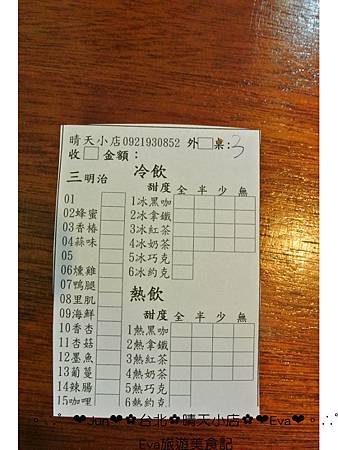 晴天小店0921930852 外□桌:3
收□ 金額:
冷飲
三明治
甜度 全 半 少 無
01
02蜂蜜
03香椿
04蒜味
05
06燻雞
07鴨腿
08里肌
09海鮮
10香杏
11杏菇
12墨魚
13葡蔓
14辣腸
15咖哩
1冰黑咖
2冰拿鐵
3冰紅茶
4冰奶茶
5冰巧克
6冰約克
熱飲
甜度 全 半 少 無
1熱黑咖
2熱拿鐵
3熱紅茶
4熱奶茶
5熱巧克
6熱約克
❤Jun❤✿台北✿晴天小店✿❤Eva❤
Eva旅遊美食記